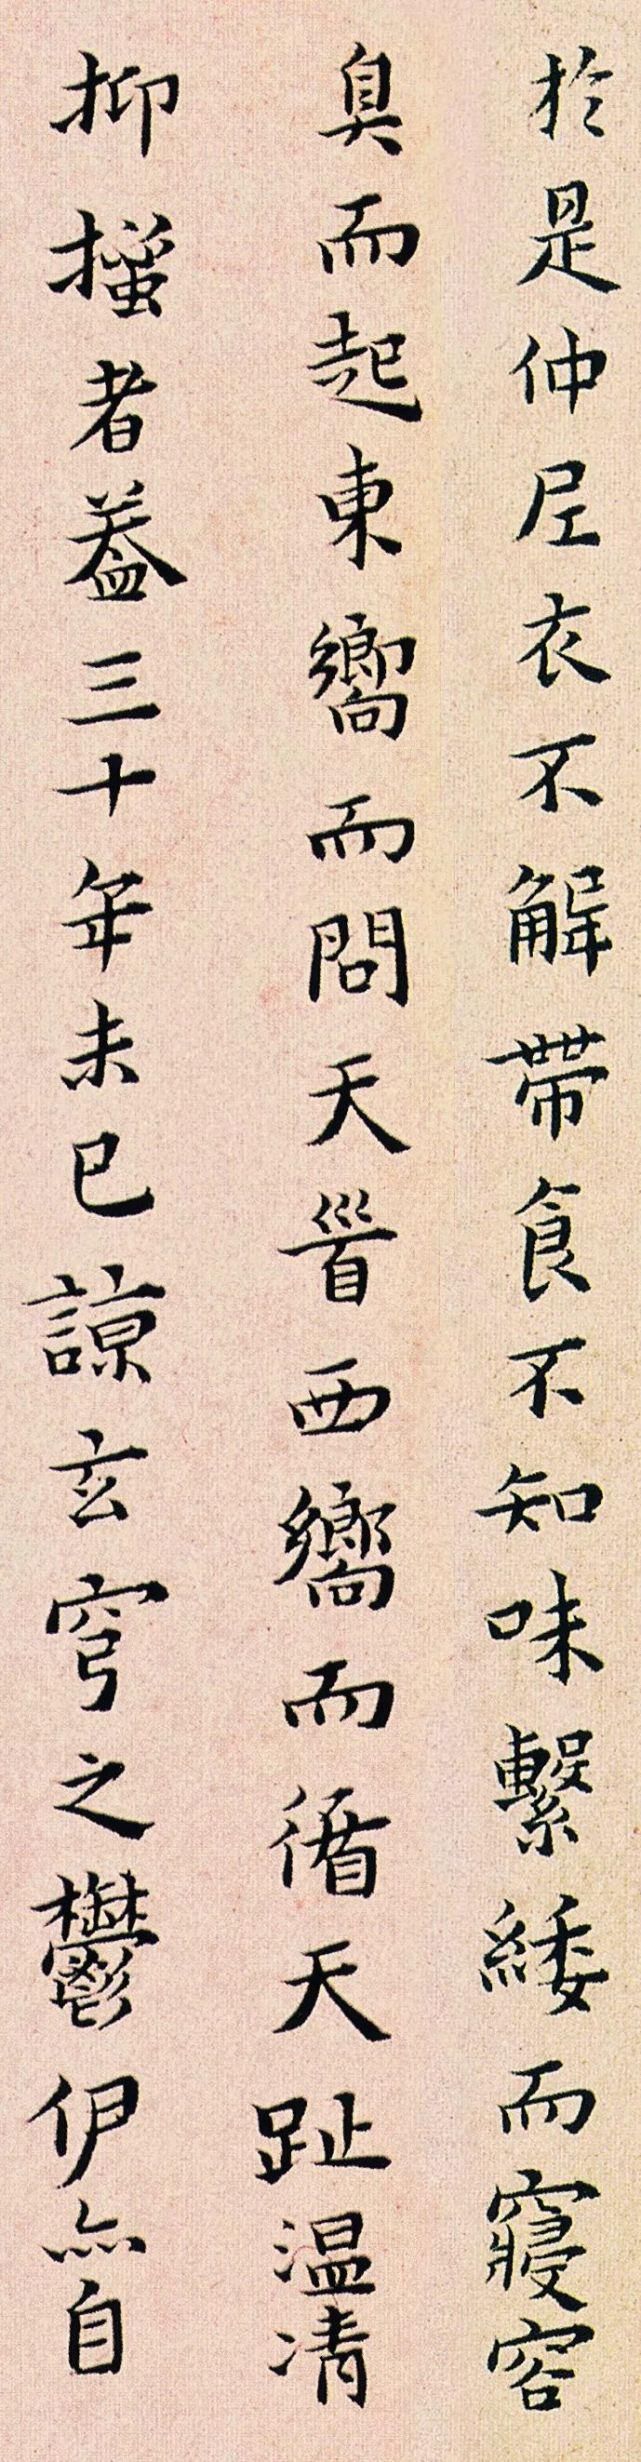 於是仲𡰥衣不解帶食不知味繫緌而寢容
臭而起東嚮而問天𩠐西嚮而循天趾温凊
抑搔者葢三十年未已諒玄穹之鬱伊亦自